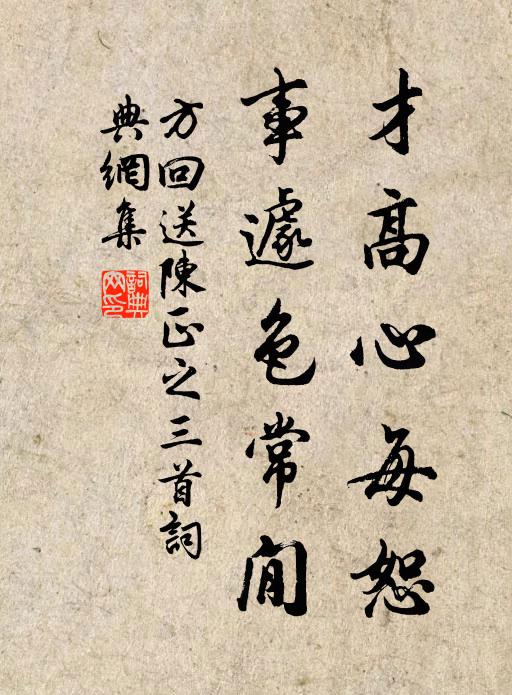 才高心每恕
事遽色常閒
方回送陳正之三首詞
典網集
詞典網印